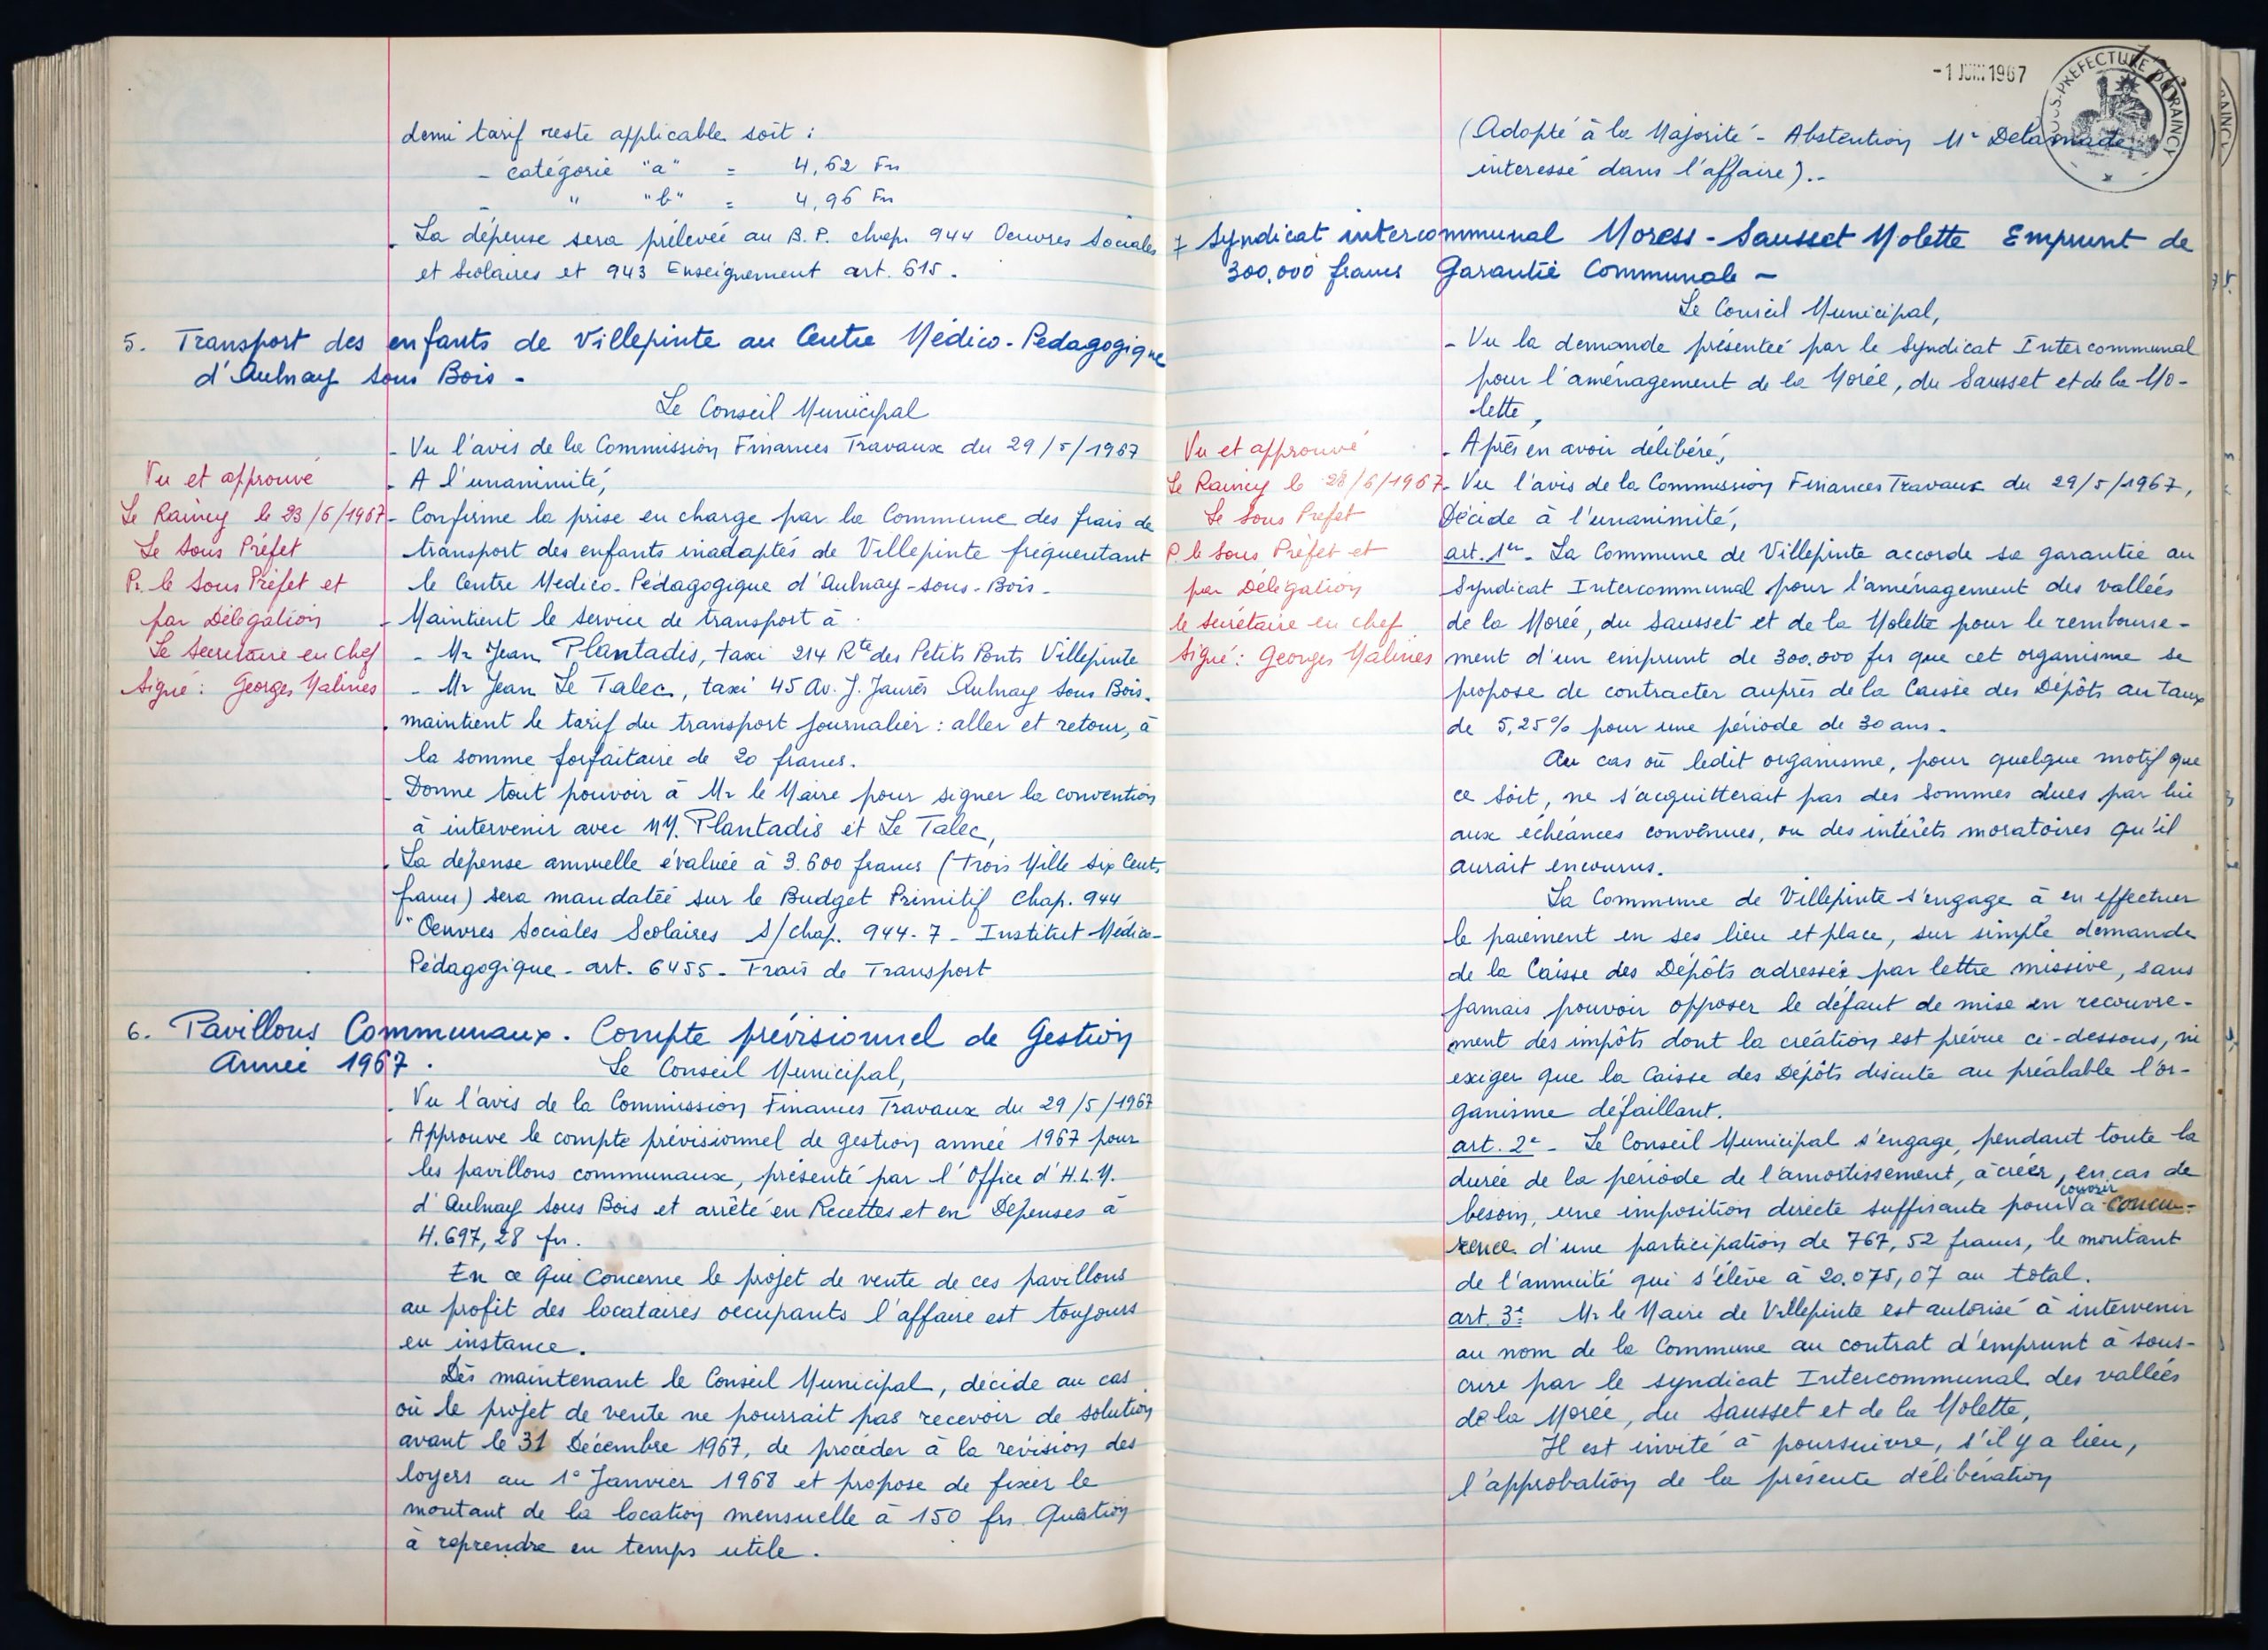 demi tarif reste applicable soit :
- catégorie "a" = 4,62 Frs
- " "b" = 4,96 Frs
. La dépense sera prélevée au B.P. chap. 944 Oeuvres Sociales
et Scolaires et 943 Enseignement art. 615.
5. Transport des enfants de Villepinte au Centre Médico-Pédagogique
d'Aulnay sous Bois -
Le Conseil Municipal
- Vu l'avis de la Commission Finances Travaux du 29/5/1967
- A l'unanimité,
- Confirme la prise en charge par la Commune des frais de
transport des enfants inadaptés de Villepinte fréquentant
le Centre Medico-Pédagogique d'Aulnay-sous-Bois-
- Maintient le service de transport à
- Mr Jean Plantadis, taxi 214 Rte des Petits Ponts Villepinte
- Mr Jean Le Talec, taxi 45 Av. J. Jaurès Aulnay sous Bois.
. maintient le tarif du transport journalier : aller et retour, à
la somme forfaitaire de 20 francs.
- Donne tout pouvoir à Mr le Maire pour signer la convention
à intervenir avec MM. Plantadis et Le Talec,
. La dépense annuelle évaluée à 3.600 francs (trois Mille six Cents
francs) sera mandatée sur le Budget Primitif Chap. 944
"Oeuvres Sociales Scolaires S/chap. 944-7 - Institut Médico-
Pédagogique - art. 6455 - Frais de Transport
Vu et approuvé
Le Raincy le 23/6/1967
Le Sous Préfet
Pr. le Sous Préfet et
par Délégation
Le Secrétaire en Chef
Signé : Georges Malines
6. Pavillons Communaux. Compte prévisionnel de Gestion
Année 1967.
Le Conseil Municipal,
. Vu l'avis de la Commission Finances Travaux du 29/5/1967
. Approuve le compte prévisionnel de gestion année 1967 pour
les pavillons communaux, présenté par l'Office d'H.L.M.
d'Aulnay sous Bois et arrêté en Recettes et en Dépenses à
4.697,28 frs.
En ce qui concerne le projet de vente de ces pavillons
au profit des locataires occupants l'affaire est toujours
en instance.
Dès maintenant le Conseil Municipal, décide au cas
où le projet de vente ne pourrait pas recevoir de solution
avant le 31 Décembre 1967, de procéder à la révision des
loyers au 1° Janvier 1968 et propose de fixer le
montant de la location mensuelle à 150 frs. Question
à reprendre en temps utile.
-1 JUIN 1967
SOUS-PREFECTURE DU RAINCY
(Adopté à la Majorité - Abstention Mr Delamade
interessé dans l'affaire).-
7 Syndicat intercommunal Moress-Sausset Molette Emprunt de
300.000 francs Garantie Communale -
Le Conseil Municipal,
- Vu la demande présentée par le Syndicat Intercommunal
pour l'aménagement de la Morée, du Sausset et de la Mo-
lette,
- Après en avoir délibéré,
- Vu l'avis de la Commission Finances Travaux du 29/5/1967,
Décide à l'unanimité,
art. 1er - La Commune de Villepinte accorde sa garantie au
Syndicat Intercommunal pour l'aménagement des vallées
de la Morée, du Sausset et de la Molette pour le rembourse-
ment d'un emprunt de 300.000 frs que cet organisme se
propose de contracter auprès de la Caisse des Dépôts au taux
de 5,25% pour une période de 30 ans.
Au cas où ledit organisme, pour quelque motif que
ce soit, ne s'acquitterait pas des sommes dues par lui
aux échéances convenues, ou des intérêts moratoires qu'il
aurait encourus.
La Commune de Villepinte s'engage à en effectuer
le paiement en ses lieu et place, sur simple demande
de la Caisse des Dépôts adressée par lettre missive, sans
jamais pouvoir opposer le défaut de mise en recouvre-
ment des impôts dont la création est prévue ci-dessous, ni
exiger que la Caisse des Dépôts discute au préalable l'or-
ganisme défaillant.
art. 2e - Le Conseil Municipal s'engage, pendant toute la
durée de la période de l'amortissement, à créer, en cas de
besoin, une imposition directe suffisante pour couvrir à concur-
rence d'une participation de 767,52 francs, le montant
de l'annuité qui s'élève à 20.075,07 au total.
art. 3e Mr le Maire de Villepinte est autorisé à intervenir
au nom de la Commune au contrat d'emprunt à sous-
crire par le Syndicat Intercommunal des vallées
de la Morée, du Sausset et de la Molette,
Il est invité à poursuivre, s'il y a lieu,
l'approbation de la présente délibération
Vu et approuvé
Le Raincy le 28/6/1967
Le Sous Préfet
P. le Sous Préfet et
par Délégation
le Secrétaire en chef
Signé : Georges Malines